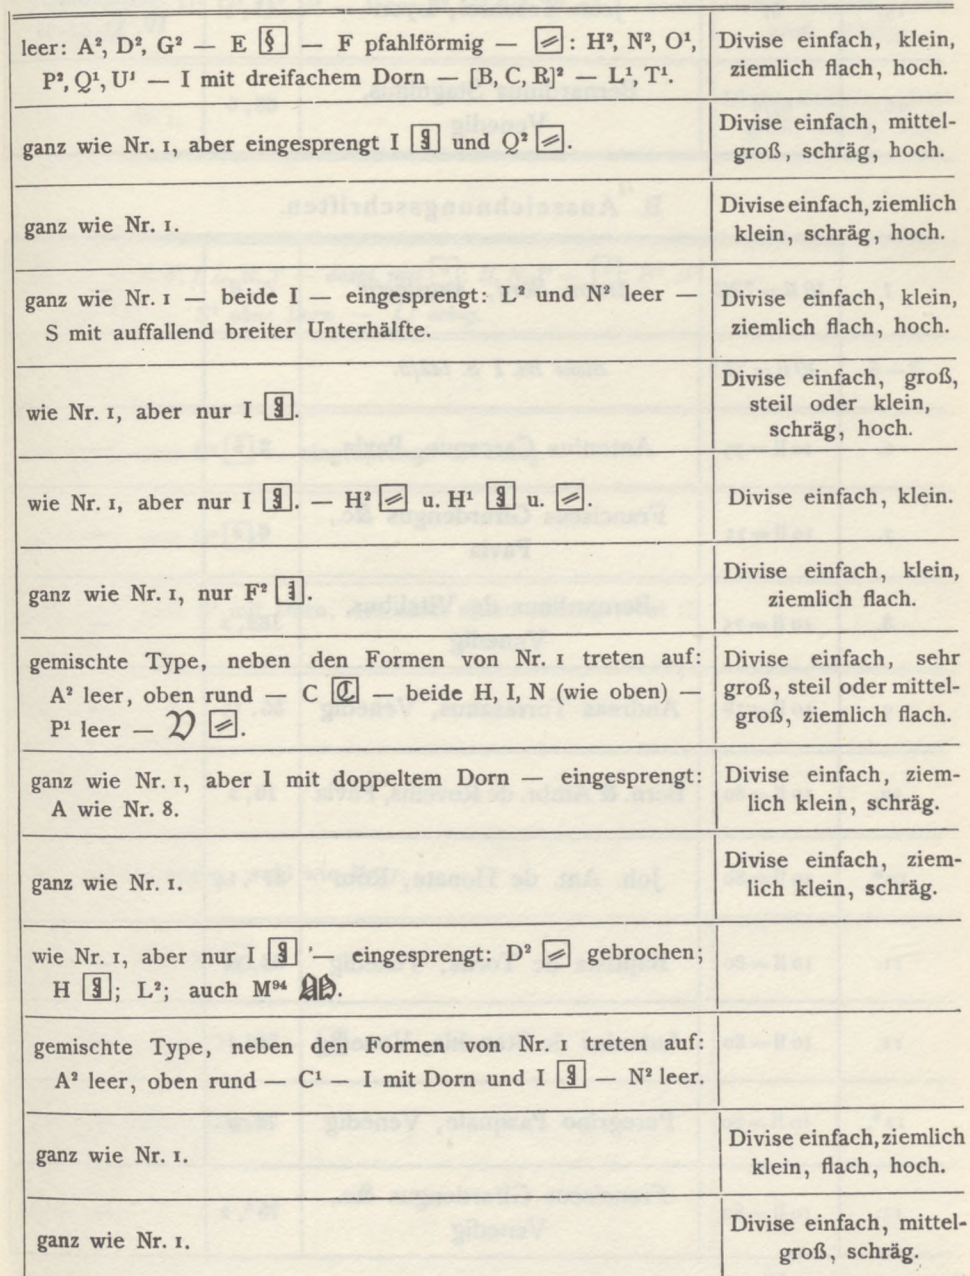 leer: A², D², G² — E § — F pfahlförmig — ⫽: H², N², O¹,
P², Q¹, U¹ — I mit dreifachem Dorn — [B, C, R]² — L¹, T¹.
Divise einfach, klein,
ziemlich flach, hoch.
ganz wie Nr. 1, aber eingesprengt I und Q² ⫽.
Divise einfach, mittel-
groß, schräg, hoch.
ganz wie Nr. 1.
Divise einfach, ziemlich
klein, schräg, hoch.
ganz wie Nr. 1 — beide I — eingesprengt: L² und N² leer —
S mit auffallend breiter Unterhälfte.
Divise einfach, klein,
ziemlich flach, hoch.
wie Nr. 1, aber nur I.
Divise einfach, groß,
steil oder klein,
schräg, hoch.
wie Nr. 1, aber nur I. — H² ⫽ u. H¹ u. ⫽.
Divise einfach, klein.
ganz wie Nr. 1, nur F².
Divise einfach, klein,
ziemlich flach.
gemischte Type, neben den Formen von Nr. 1 treten auf:
A² leer, oben rund — C ℭ — beide H, I, N (wie oben) —
P¹ leer — 𝔙 ⫽.
Divise einfach, sehr
groß, steil oder mittel-
groß, ziemlich flach.
ganz wie Nr. 1, aber I mit doppeltem Dorn — eingesprengt:
A wie Nr. 8.
Divise einfach, ziem-
lich klein, schräg.
ganz wie Nr. 1.
Divise einfach, ziem-
lich klein, schräg.
wie Nr. 1, aber nur I — eingesprengt: D² ⫽ gebrochen;
H; L²; auch M⁹⁴.
gemischte Type, neben den Formen von Nr. 1 treten auf:
A² leer, oben rund — C¹ — I mit Dorn und I — N² leer.
ganz wie Nr. 1.
Divise einfach, ziemlich
klein, flach, hoch.
ganz wie Nr. 1.
Divise einfach, mittel-
groß, schräg.